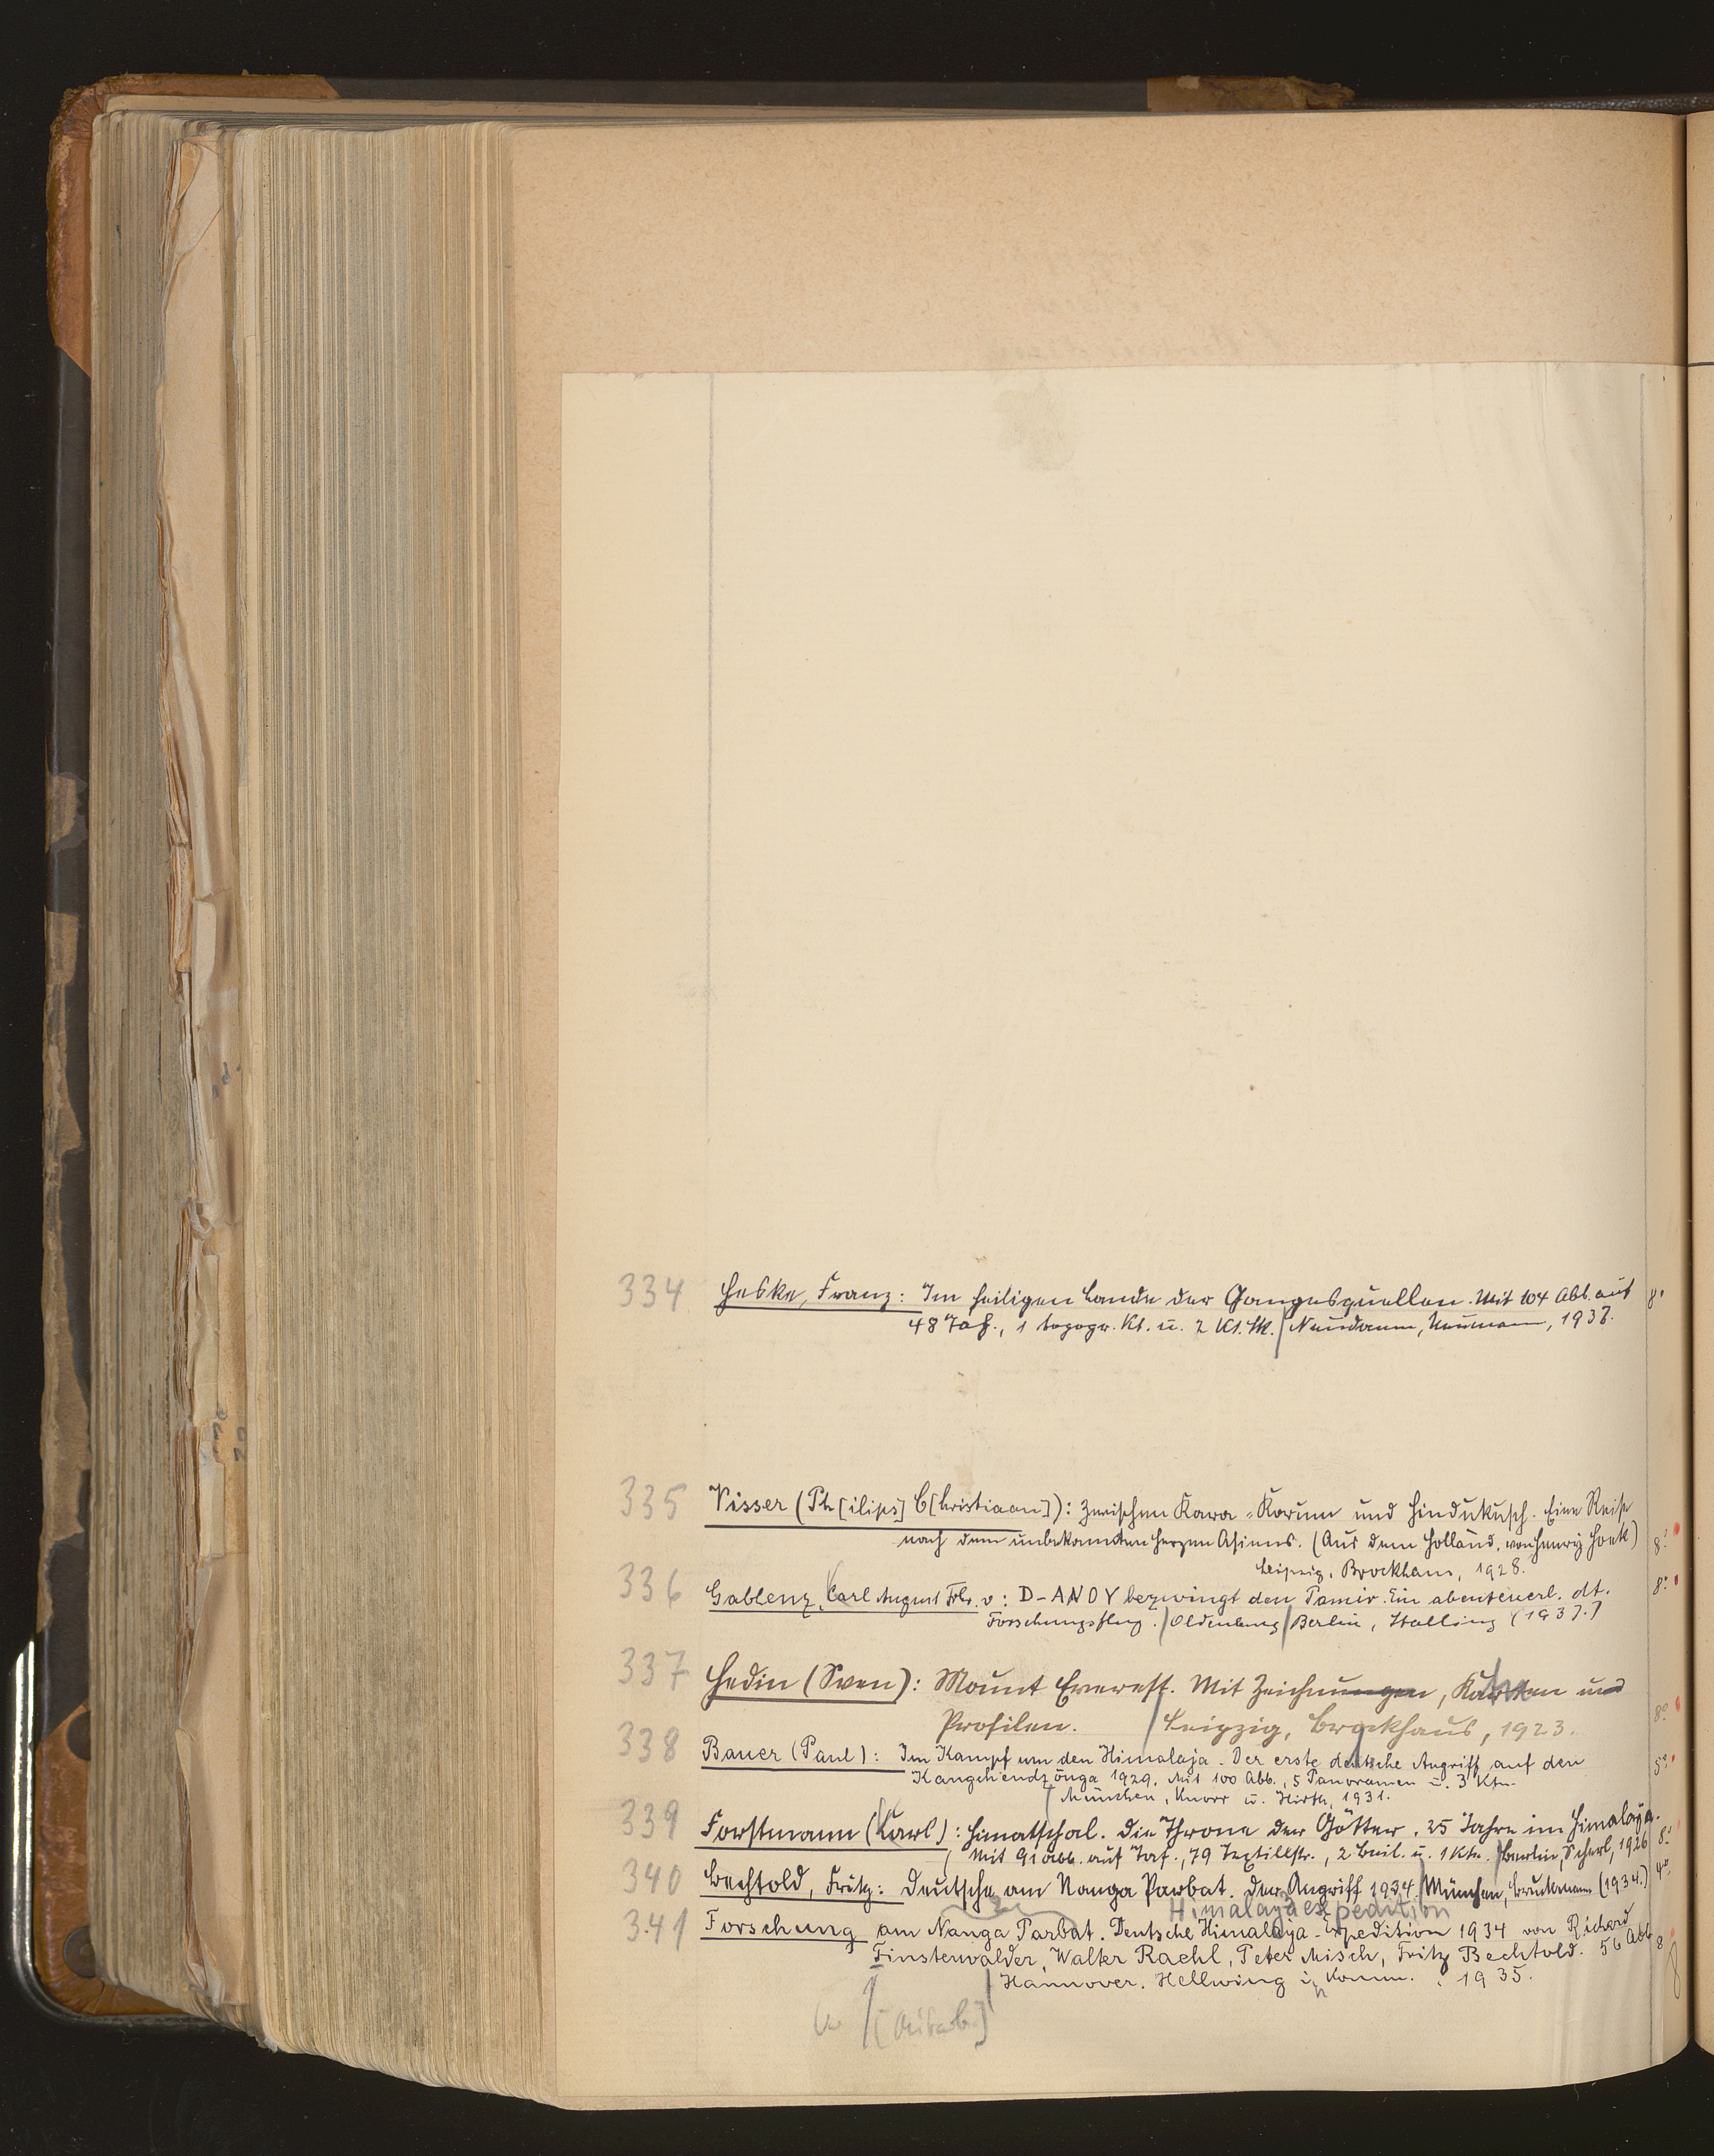 334 Heske, Franz: Im heiligen Lande der Gangesquellen. Mit 104 Abb. auf 8°
48 Taf., 1 topogr. Kt. u. 2 Kt. Sk. / Neudamm, Neumann, 1937.
335 Visser (Ph[ilips] C[hristiaan]): Zwischen Kara-Korum und Hindukusch. Eine Reise
nach dem unbekannten Herzen Asiens. (Aus dem Holländ. von Henry Hoek) 8°
Leipzig, Brockhaus, 1928.
336 Gablenz, Carl August Frhr. v: D-ANOY bezwingt den Pamir. Ein abenteuerl. dt. 8°
Forschungsflug. / Oldenburg / Berlin, Stalling (1937.)
337 Hedin (Sven): Mount Everest. Mit Zeichnungen, Karten und
Profilen. / Leipzig, Brockhaus, 1923. 8°
338 Bauer (Paul): Im Kampf um den Himalaja. Der erste deutsche Angriff auf den
Kangchendzönga 1929. Mit 100 Abb., 5 Panoramen u. 3 Ktn.
/ München, Knorr u. Hirth, 1931.
339 Forstmann (Karl): Himatschal. Die Throne der Götter. 25 Jahre im Himalaya.
Mit 91 Abb. auf Taf., 79 Textillstr., 2 Beil. u. 1 Ktn. / Berlin, Scherl, 1926 8°
340 Bechtold, Fritz: Deutsche am Nanga Parbat. Der Angriff 1934. / München, Bruckmann (1934.) 4°
Himalayaexpedition
341 Forschung am Nanga Parbat. Deutsche Himalaja-Expedition 1934 von Richard
Finsterwalder, Walter Raehl, Peter Misch, Fritz Bechtold. 56 Abb. 8
/ Hannover. Hellwing in Komm. 1935.
[Mitarb.]